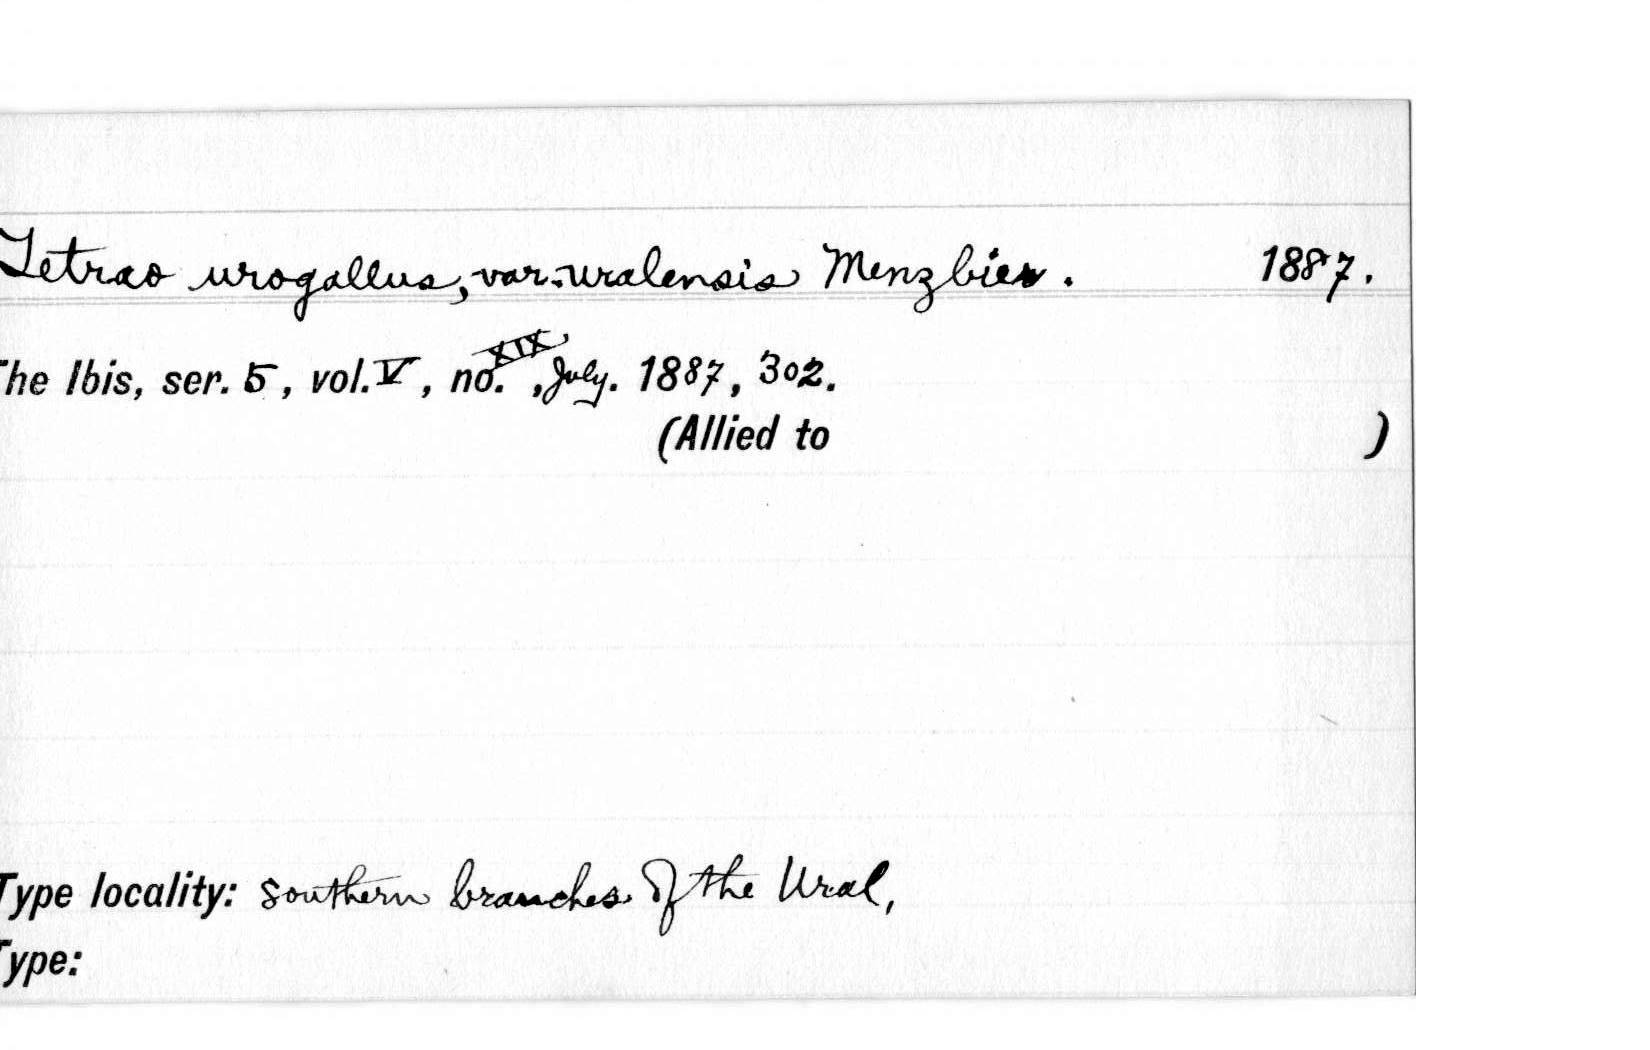 Tetrao urogallus, var. uralensis Menzbier. 1887.
The Ibis, ser. 5, vol. V, no. XIX, July. 1887, 302.
(Allied to )
Type locality: Southern branches of the Ural,
Type: